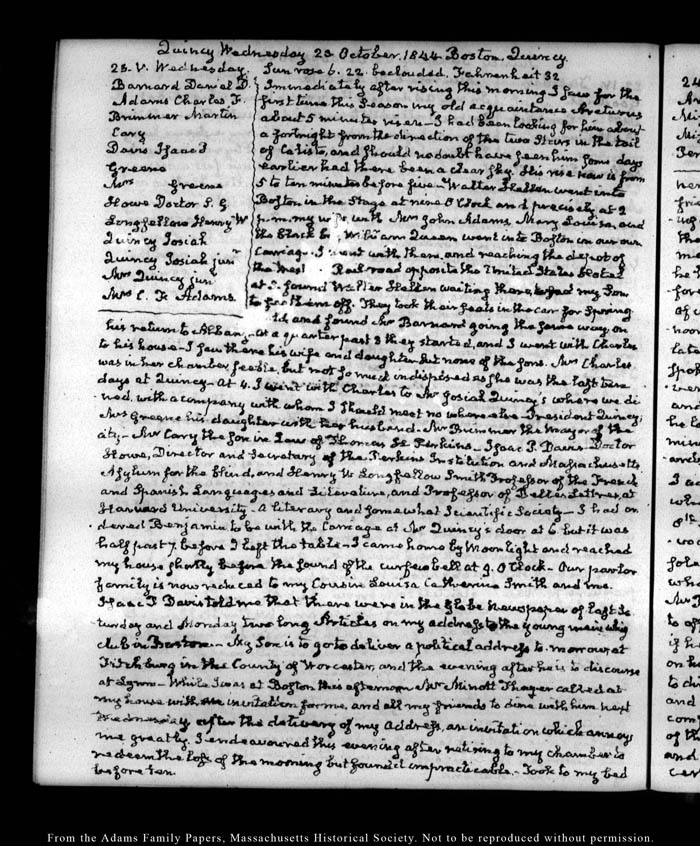 Quincy Wednesday 23 October. 1844 Boston. Quincy.
23. V. Wednesday.
Barnard Daniel D.
Adams Charles F.
Brimmer Martin
Cary
Davis Isaac P
Greene
Mrs Greene
Howe Doctor S. G
Longfellow Henry W
Quincy Josiah
Quincy Josiah junr
Mrs Quincy junr
Mrs C. F. Adams.
Sun rose 6. 22. beclouded. Fahrenheit 32
Immediately after rising this morning I saw for the
first time this Season my old acquaintance Arcturus
about 5 minutes risen— I had been looking for him about
a fortnight from the direction of the two Stars in the tail
of Calisto, and should no doubt have seen him some days
earlier had there been a clear sky. His rise now is from
5 to ten minutes before five— Walter Hellen went into
Boston in the Stage at nine O'Clock and precisely at 2
p.m. my wife, with Mrs John Adams, Mary Louisa, and
the black William Queen went into Boston in our own
Carriage. I went with them, and reaching the depot of
the West Rail road opposite the United States Hotel
at 3. found Walter Hellen waiting there, and my Son
to see them off. They took their seats in the car for Spring
and found Mr Barnard going the same way, on
his return to Albany— at a quarter past 3 they started, and I went with Charles
to his house— I saw there his wife and daughter but none of the sons. Mrs Charles
was in her chamber feeble, but not so much indisposed as she was the last two
days at Quincy— At 4. I went with Charles to Mr Josiah Quincy's where we di-
ned, with a company with whom I should meet no where else President Quincy;
Mrs Greene his daughter with her husband— Mr Brimmer the Mayor of the
city— Mr Cary the Son in Law of Thomas H. Perkins— Isaac P. Davis Doctor
Howe, Director and Secretary of the Perkins Institution and Massachusetts
Asylum for the Blind, and Henry W. Longfellow Smith Professor of the French
and Spanish Languages and Literature, and Professor of Belles Lettres, at
Harvard University— A literary and somewhat Scientific Society— I had or-
dered Benjamin to be with the Carriage at Mr Quincy's door at 6 but it was
half past 7. before I left the table— I came home by Moonlight and reached
my house shortly before the sound of the curfew bell at 9. O'Clock— Our parlor
family is now reduced to my Cousin Louisa Catherine Smith and me.
Isaac P Davis told me that there were in the Globe Newspaper of last Sa-
turday and Monday two long Articles on my address to the young men's whig
Club in Boston— My Son is to go to deliver a political address to morrow at
Fitchburg in the County of Worcester, and the evening after he is to discourse
at Lynn— While I was at Boston this afternoon Mr Minott Thayer called at
my house with an invitation for me, and all my friends to dine with him next
Wednesday after the delivery of my Address, an invitation which annoys
me greatly. I endeavoured this evening after retiring to my chamber to
redeem the loss of the morning but found it impracticable— Took to my bed
before ten.
From the Adams Family Papers, Massachusetts Historical Society. Not to be reproduced without permission.